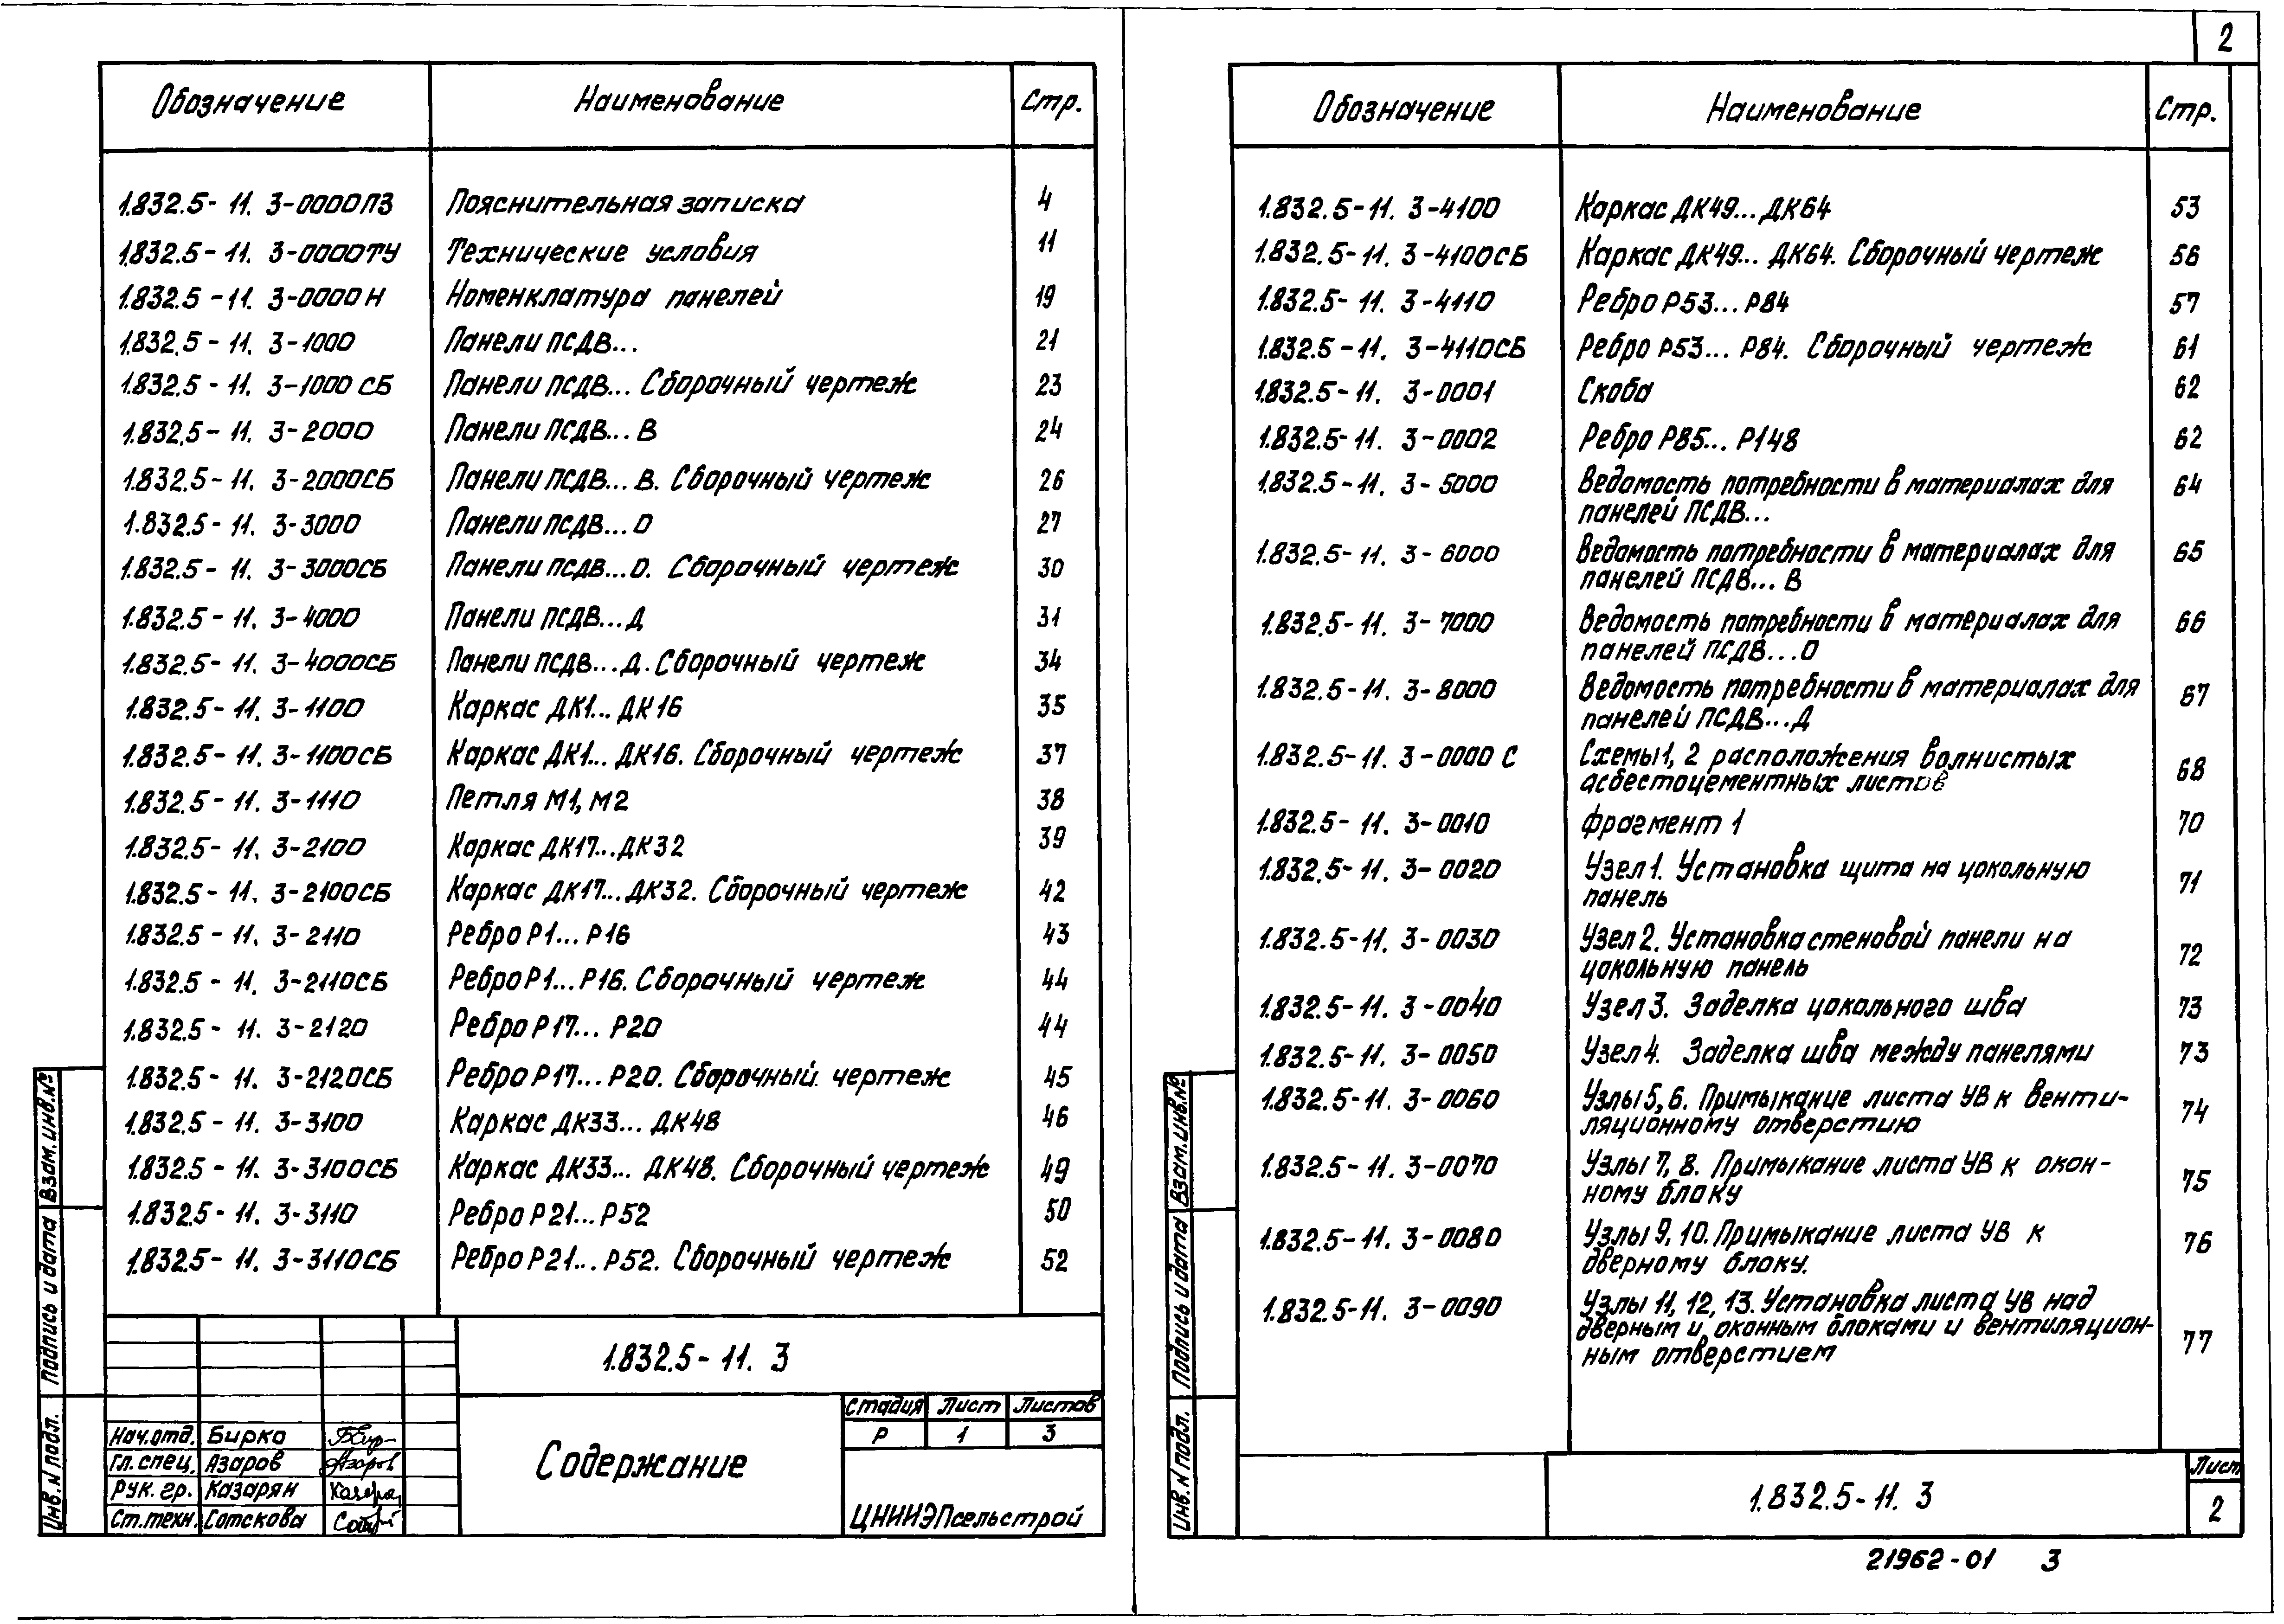 2
Обозначение Наименование Стр.
1.832.5-11. 3-0000ПЗ Пояснительная записка 4
1.832.5-11. 3-0000ТУ Технические условия 11
1.832.5-11. 3-0000Н Номенклатура панелей 19
1.832.5-11. 3-1000 Панели ПСДВ... 21
1.832.5-11. 3-1000СБ Панели ПСДВ... Сборочный чертеж 23
1.832.5-11. 3-2000 Панели ПСДВ...В 24
1.832.5-11. 3-2000СБ Панели ПСДВ...В. Сборочный чертеж 26
1.832.5-11. 3-3000 Панели ПСДВ...О 27
1.832.5-11. 3-3000СБ Панели ПСДВ...О. Сборочный чертеж 30
1.832.5-11. 3-4000 Панели ПСДВ...Д 31
1.832.5-11. 3-4000СБ Панели ПСДВ...Д. Сборочный чертеж 34
1.832.5-11. 3-1100 Каркас ДК1...ДК16 35
1.832.5-11. 3-1100СБ Каркас ДК1...ДК16. Сборочный чертеж 37
1.832.5-11. 3-1110 Петля М1, М2 38
1.832.5-11. 3-2100 Каркас ДК17...ДК32 39
1.832.5-11. 3-2100СБ Каркас ДК17...ДК32. Сборочный чертеж 42
1.832.5-11. 3-2110 Ребро Р1...Р16 43
1.832.5-11. 3-2110СБ Ребро Р1...Р16. Сборочный чертеж 44
1.832.5-11. 3-2120 Ребро Р17...Р20 44
1.832.5-11. 3-2120СБ Ребро Р17...Р20. Сборочный чертеж 45
1.832.5-11. 3-3100 Каркас ДК33...ДК48 46
1.832.5-11. 3-3100СБ Каркас ДК33...ДК48. Сборочный чертеж 49
1.832.5-11. 3-3110 Ребро Р21...Р52 50
1.832.5-11. 3-3110СБ Ребро Р21...Р52. Сборочный чертеж 52
1.832.5-11. 3
Стадия Лист Листов
Р 1 3
Нач.отд. Бирко
Гл.спец. Азаров Азаров
Рук.гр. Казарян
Ст.техн. Сотскова
Содержание
ЦНИИЭПсельстрой
Взам.инв.№
Подпись и дата
Инв.№ подл.
Обозначение Наименование Стр.
1.832.5-11. 3-4100 Каркас ДК49...ДК64 53
1.832.5-11. 3-4100СБ Каркас ДК49...ДК64. Сборочный чертеж 56
1.832.5-11. 3-4110 Ребро Р53...Р84 57
1.832.5-11. 3-4110СБ Ребро Р53...Р84. Сборочный чертеж 61
1.832.5-11. 3-0001 Скоба 62
1.832.5-11. 3-0002 Ребро Р85...Р148 62
1.832.5-11. 3-5000 Ведомость потребности в материалах для 64
панелей ПСДВ...
1.832.5-11. 3-6000 Ведомость потребности в материалах для 65
панелей ПСДВ...В
1.832.5-11. 3-7000 Ведомость потребности в материалах для 66
панелей ПСДВ...О
1.832.5-11. 3-8000 Ведомость потребности в материалах для 67
панелей ПСДВ...Д
1.832.5-11. 3-0000С Схемы 1, 2 расположения волнистых
асбестоцементных листов 68
1.832.5-11. 3-0010 Фрагмент 1 70
1.832.5-11. 3-0020 Узел 1. Установка щита на цокольную
панель 71
1.832.5-11. 3-0030 Узел 2. Установка стеновой панели на
цокольную панель 72
1.832.5-11. 3-0040 Узел 3. Заделка цокольного шва 73
1.832.5-11. 3-0050 Узел 4. Заделка шва между панелями 73
1.832.5-11. 3-0060 Узлы 5, 6. Примыкание листа УВ к венти-
ляционному отверстию 74
1.832.5-11. 3-0070 Узлы 7, 8. Примыкание листа УВ к окон-
ному блоку 75
1.832.5-11. 3-0080 Узлы 9, 10. Примыкание листа УВ к
дверному блоку. 76
1.832.5-11. 3-0090 Узлы 11, 12, 13. Установка листа УВ над
дверным и оконным блоками и вентиляцион-
ным отверстием 77
1.832.5-11. 3
Лист
2
Взам.инв.№
Подпись и дата
Инв.№ подл.
21962-01 3